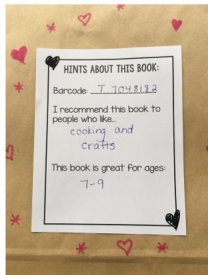 HINTS ABOUT THIS BOOK:
Barcode: T 7048183
I recommend this book to
people who like...
cooking and
crafts
This book is great for ages:
7-9